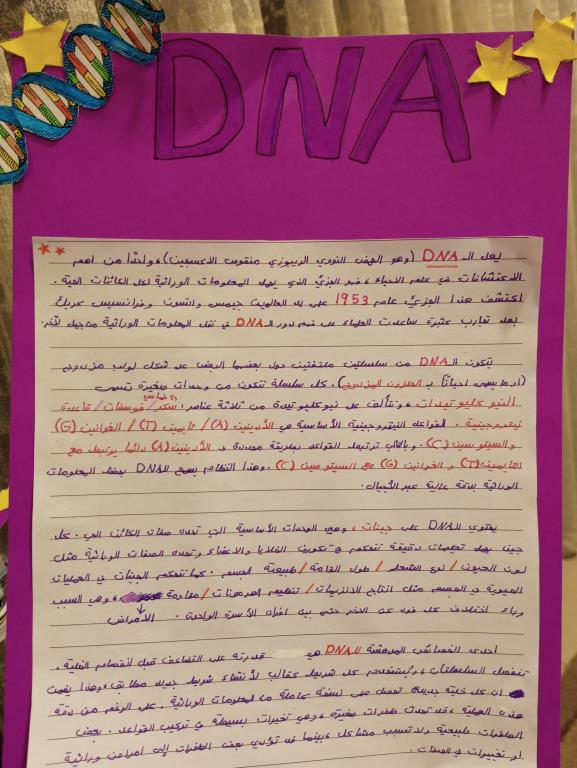 DNA
يعد الـ DNA (وهو الحمض النووي الريبوزي منقوص الاكسجين)، واحدًا من اهم
الاكتشافات في علم الاحياء، فهو الجزيء الذي يحمل المعلومات الوراثية لكل الكائنات الحية.
اكتشف هذا الجزيء عام 1953 على يد العالمين جيمس واتسون وفرانسيس كريك
بعد تجارب كثيرة ساعدت العلماء على فهم دور الـ DNA في نقل المعلومات الوراثية من جيل لآخر.
يتكون الـ DNA من سلسلتين ملتفتين حول بعضهما البعض على شكل لولب مزدوج
(او ما يسمى احيانًا بـ الحلزون المزدوج). كل سلسلة تتكون من وحدات صغيرة تسمى
النيوكليوتيدات، وتتألف كل نيوكليوتيدة من ثلاثة عناصر: سكر خماسي / فوسفات / قاعدة
نيتروجينية. القواعد النيتروجينية الأساسية هي الأدينين (A) / ثايمين (T) / الغوانين (G)
والسيتوسين (C). وبالتالي ترتبط القواعد بطريقة محددة: الأدينين (A) دائما يرتبط مع
الثايمين (T) والغوانين (G) مع السيتوسين (C). وهذا النظام يسمح للـ DNA بحفظ المعلومات
الوراثية بدقة عالية عبر الأجيال.
يحتوي الـ DNA على جينات، وهي الوحدات الأساسية التي تحدد صفات الكائن الحي. كل
جين يحمل تعليمات دقيقة تتحكم في تكوين الخلايا والاعضاء وتحدد الصفات الوراثية مثل
لون العيون / نوع الشعر / طول القامة / طبيعة الجسم. كما تتحكم الجينات في العمليات
الحيوية في الجسم مثل انتاج الانزيمات / تنظيم الهرمونات / مقاومة الأمراض، وهي السبب
وراء اختلاف كل فرد عن الاخر حتى بين افراد الأسرة الواحدة.
احدى الخصائص المدهشة للـ DNA هي قدرته على التضاعف قبل انقسام الخلية.
تنفصل السلسلتان، ويُستخدم كل شريط كقالب لأنشاء شريط جديد مطابق، وهذا يضمن
ان كل خلية جديدة تحصل على نسخة كاملة من المعلومات الوراثية. على الرغم من دقة
هذه العملية، قد تحدث طفرات صغيرة، وهي تغيرات بسيطة في تركيب القواعد. بعض
الطفرات طبيعية ولا تسبب مشاكل، بينما قد تؤدي بعض الطفرات إلى امراض وراثية
او تغييرات في الصفات.